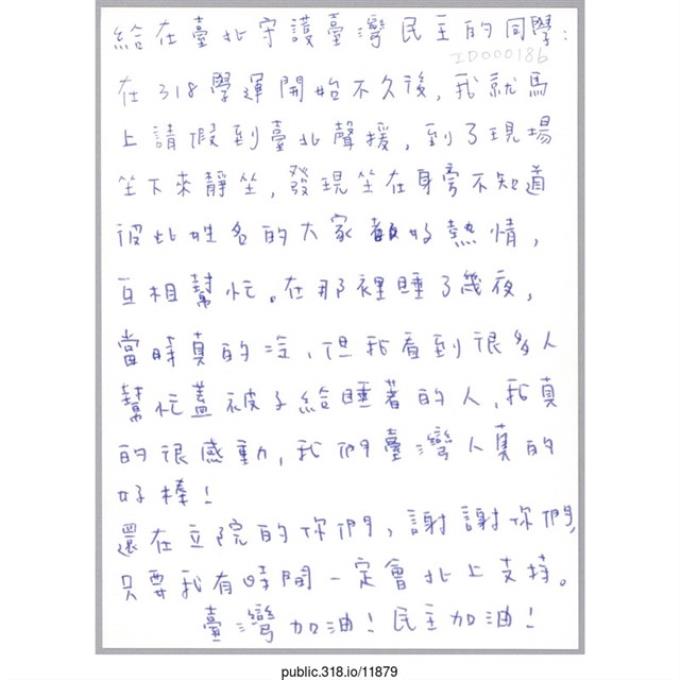 給在臺北守護臺灣民主的同學:
ID000186
在318學運開始不久後,我就馬
上請假到臺北聲援,到了現場
坐下來靜坐,發現坐在身旁不知道
彼此姓名的大家都好熱情,
互相幫忙。在那裡睡了幾夜,
當時真的冷,但我看到很多人
幫忙蓋被子給睡著的人,我真
的很感動,我們臺灣人真的
好棒!
還在立院的你們,謝謝你們,
只要我有時間一定會北上支持。
臺灣加油!民主加油!
public.318.io/11879